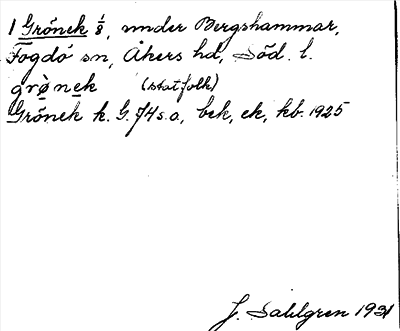 1 Grönek 1/8, under Bergshammar,
Fogdö sn, Åkers hd, Söd. l.
grønek (statfolk)
Grönek k. G. 74 s.o, bek, ek, kb. 1925
J. Sahlgren 1931